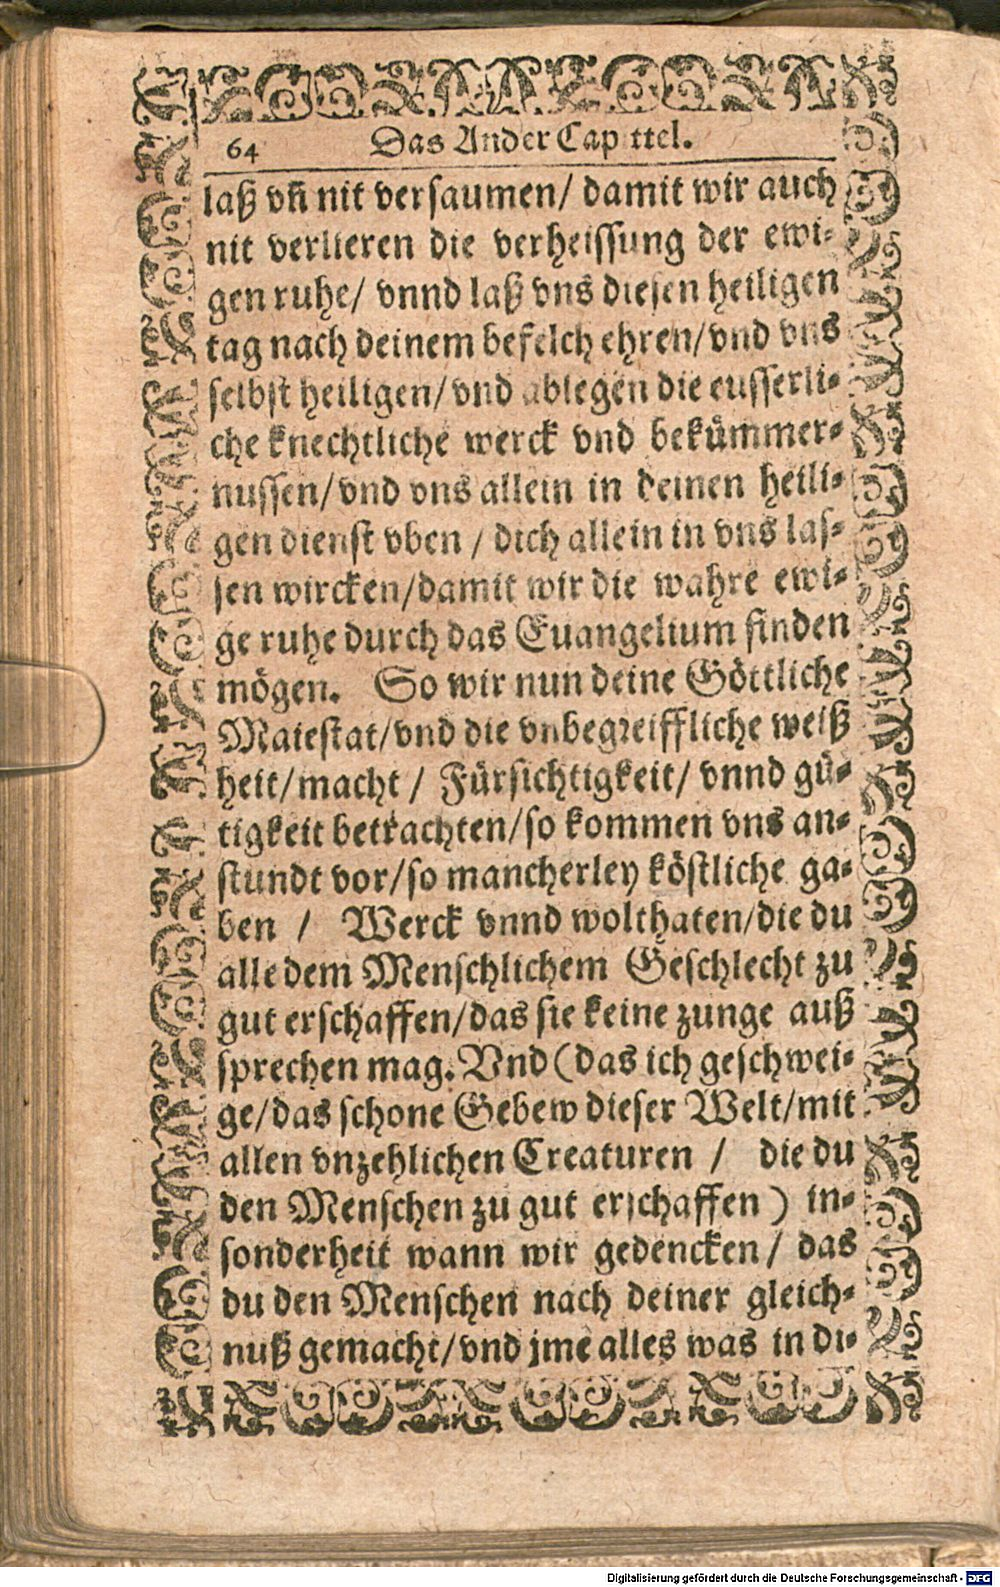 64 Das Ander Capittel.
laß vñ nit versaumen/ damit wir auch
nit verlieren die verheissung der ewi-
gen ruhe/ vnnd laß vns diesen heiligen
tag nach deinem befelch ehren/vnd vns
selbst heiligen/vnd ablegen die eusserli-
che knechtliche werck vnd bekümmer-
nussen/vnd vns allein in deinen heili-
gen dienst vben / dich allein in vns las-
sen wircken/damit wir die wahre ewi-
ge ruhe durch das Euangelium finden
mögen. So wir nun deine Göttliche
Maiestat/vnd die vnbegreiffliche weiß
heit/macht / Fürsichtigkeit/ vnnd gü-
tigkeit betrachten/so kommen vns an-
stundt vor/so mancherley köstliche ga-
ben / Werck vnnd wolthaten/die du
alle dem Menschlichem Geschlecht zu
gut erschaffen/das sie keine zunge auß
sprechen mag. Vnd (das ich geschwei-
ge/das schone Gebew dieser Welt/mit
allen vnzehlichen Creaturen / die du
den Menschen zu gut erschaffen) in-
sonderheit wann wir gedencken/ das
du den Menschen nach deiner gleich-
nuß gemacht/vnd jme alles was in di-
Digitalisierung gefördert durch die Deutsche Forschungsgemeinschaft - DFG